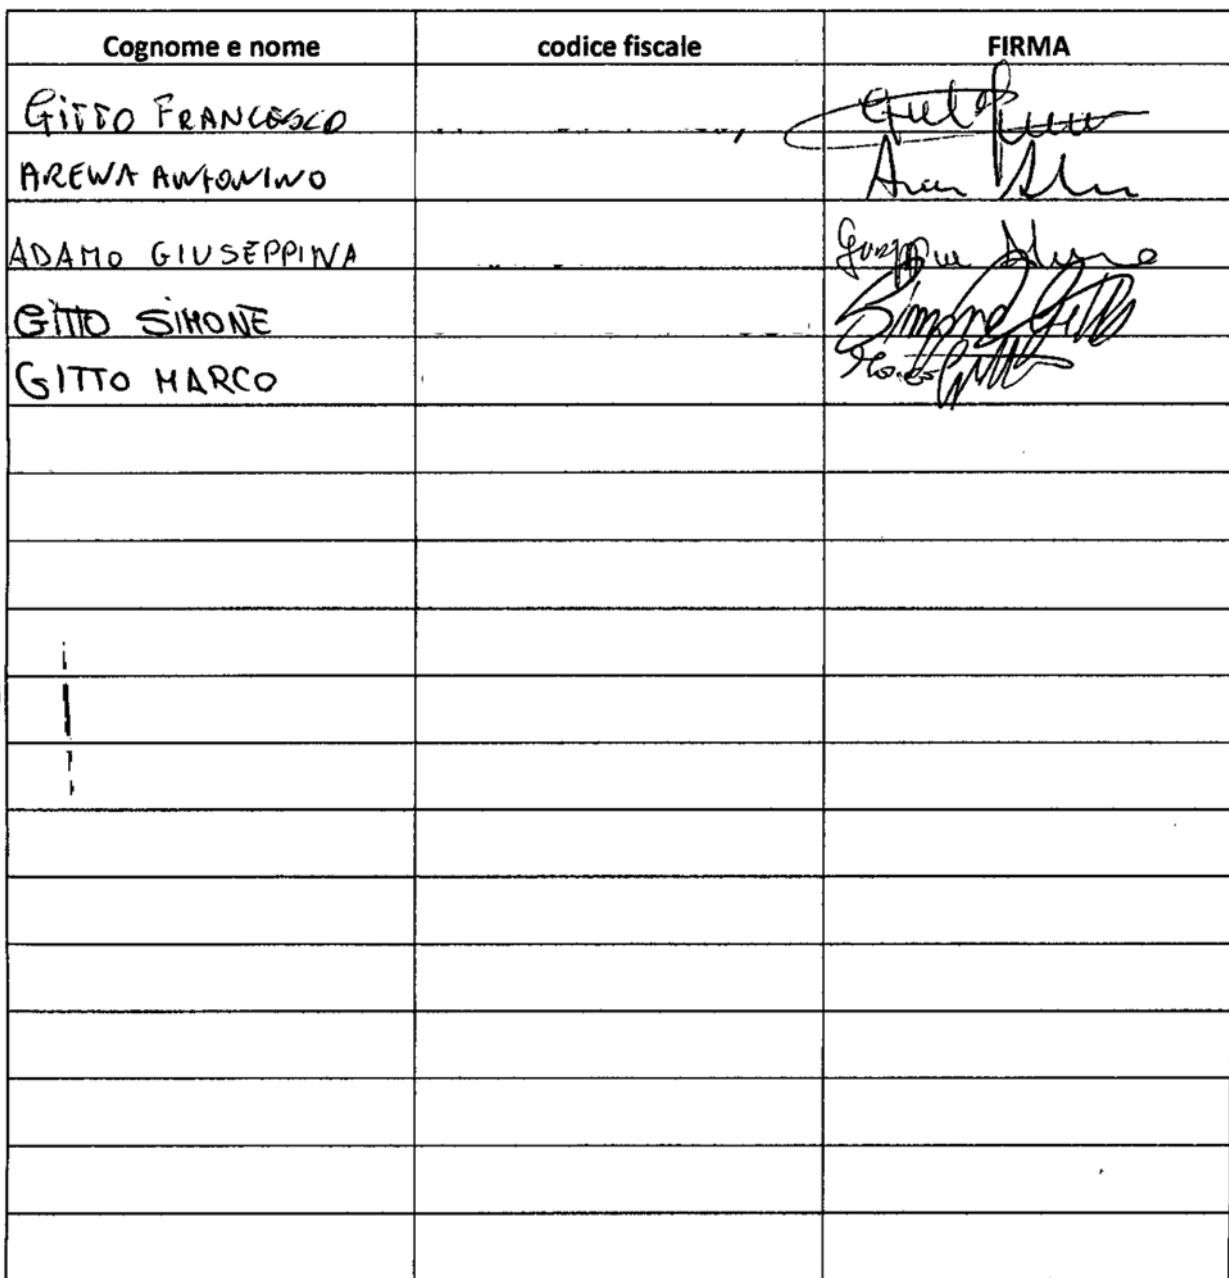 Cognome e nome codice fiscale FIRMA
GITTO FRANCESCO
ARENA ANTONINO
ADAMO GIUSEPPINA Giuseppina Adamo
GITTO SIMONE Simone Gitto
GITTO MARCO Marco Gitto